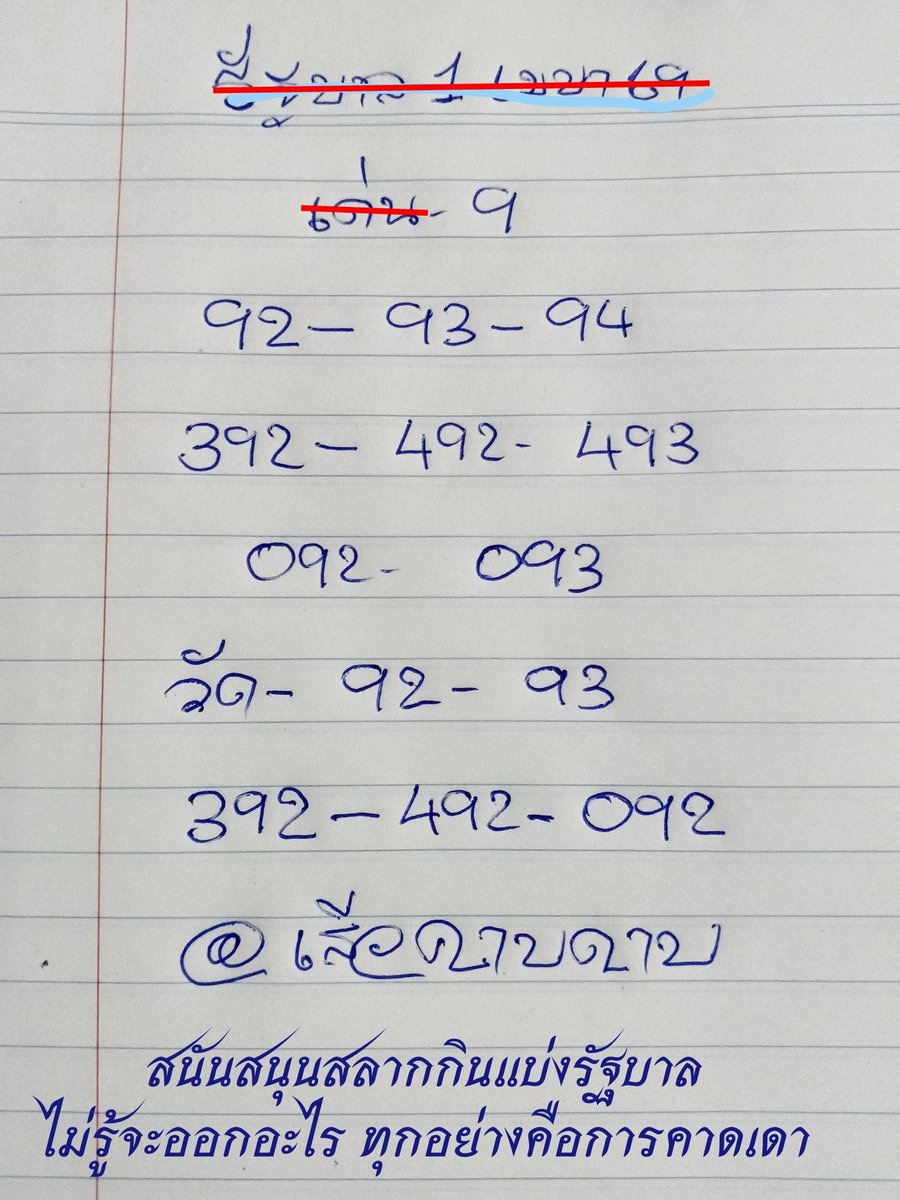 รัฐบาล 1 เมษา 69
เด่น - 9
92 - 93 - 94
392 - 492 - 493
092 - 093
วัด - 92 - 93
392 - 492 - 092
@ เสือคาบดาบ
สนันสนุนสลากกินแบ่งรัฐบาล
ไม่รู้จะออกอะไร ทุกอย่างคือการคาดเดา